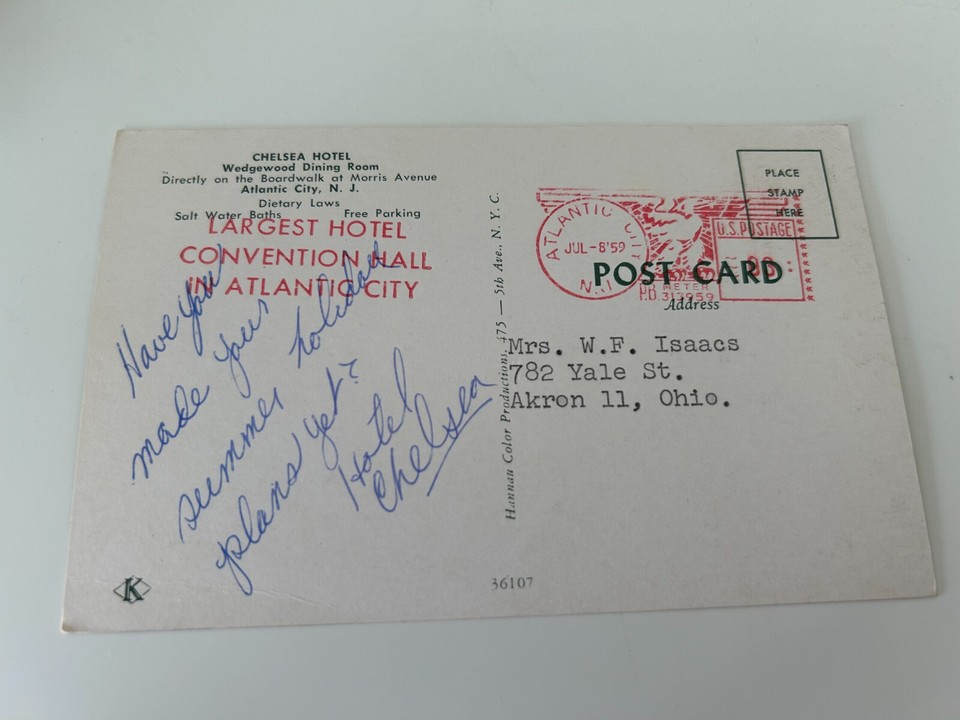 CHELSEA HOTEL
Wedgewood Dining Room
Directly on the Boardwalk at Morris Avenue
Atlantic City, N. J.
Dietary Laws
Salt Water Baths Free Parking
LARGEST HOTEL
CONVENTION HALL
IN ATLANTIC CITY
Have you
made your
summer holiday
plans yet?
Hotel
Chelsea
K
Hannau Color Productions, 475 — 5th Ave., N. Y. C.
36107
PLACE
STAMP
HERE
ATLANTIC CITY
JUL-8'59
N.J.
U.S.POSTAGE
METER
313959
POST CARD
Address
Mrs. W.F. Isaacs
782 Yale St.
Akron 11, Ohio.